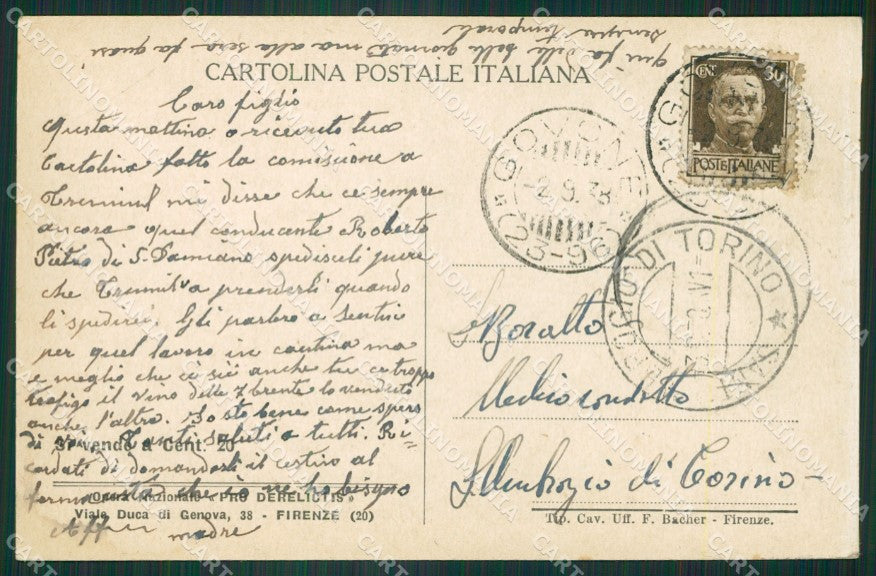 qui fa delle belle giornate ma alla sera fa quasi
sempre temporali
CARTOLINA POSTALE ITALIANA
CENT. 30
POSTE ITALIANE
GOVONE
-2.9.38
23-96
DI TORINO
Caro figlio
questa mattina o ricevuto tua
Cartolina fatto la comissione a
mi disse che ce sempre
ancora quel conducente Roberto
Pietro di S. Damiano spediscili pure
che a prenderli quando
li spedirei. Gli parlero a
per quel lavoro in cantina ma
e meglio che ce sii anche tu
il vino delle 7 brente lo venduto
anche l'altro. Io sto bene come spero
di Tanti saluti a tutti. Ri=
cordati di domandarli il cestino al
che io ne ho bisogno
Aff
madre
Si vende a Cent. 20
Opera Nazionale « PRO DERELICTIS »
Viale Duca di Genova, 38 - FIRENZE (20)
Boralto
Medico condotto
S. Ambrogio di Torino
Tip. Cav. Uff. F. Bacher - Firenze.